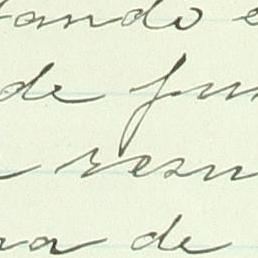 tando e
de fun
resu
ra de